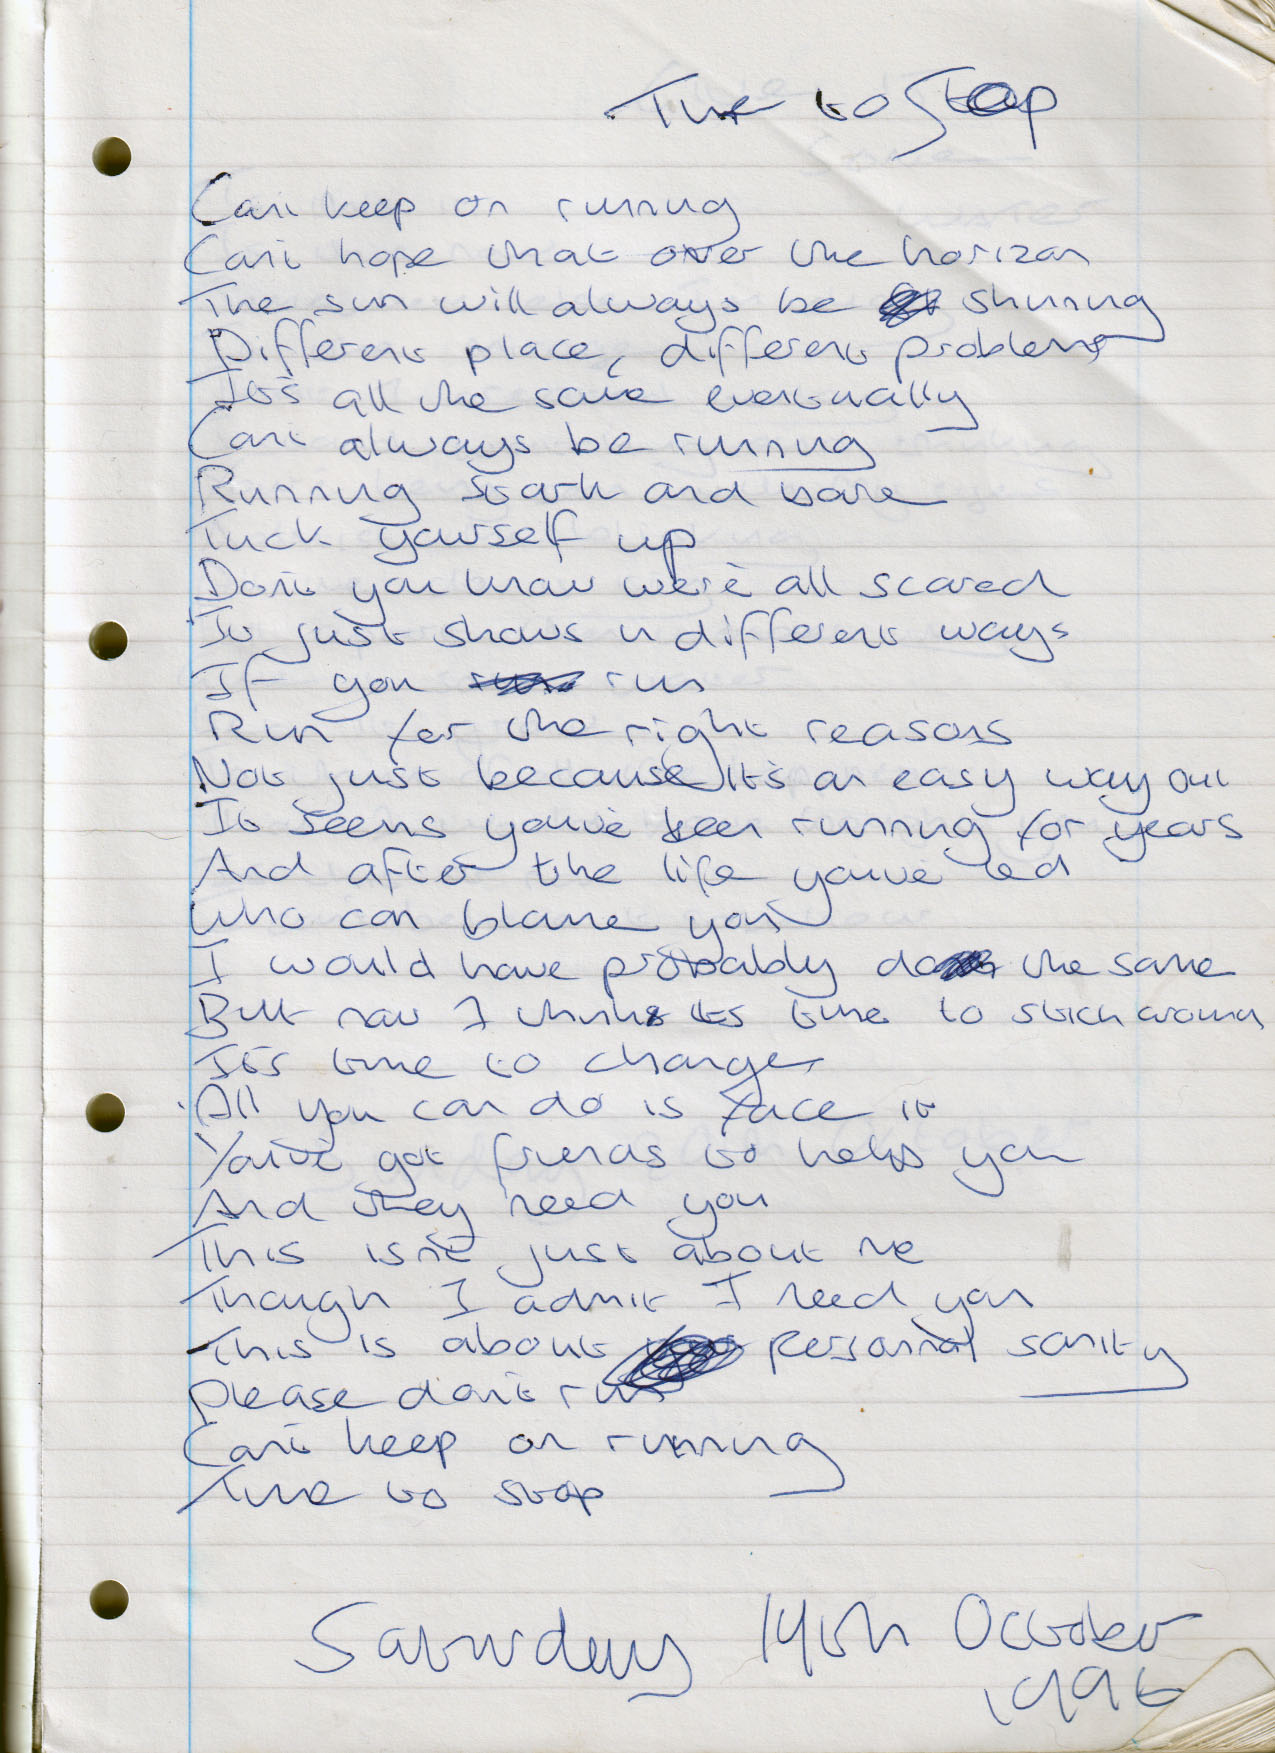 Time to Stop
Can't keep on running
Can't hope that over the horizon
The sun will always be shining
Different place, different problems
It's all the same eventually
Can't always be running
Running stark and bare
Tuck yourself up
Don't you know we're all scared
It just shows in different ways
If you run
Run for the right reasons
Not just because it's an easy way out
It seems you've been running for years
And after the life you've led
Who can blame you
I would have probably do the same
But now I think its time to stick around
It's time to change
All you can do is face it
You've got friends to help you
And they need you
This isn't just about me
Though I admit I need you
This is about personal sanity
Please don't run
Can't keep on running
Time to stop
Saturday 14th October
1996